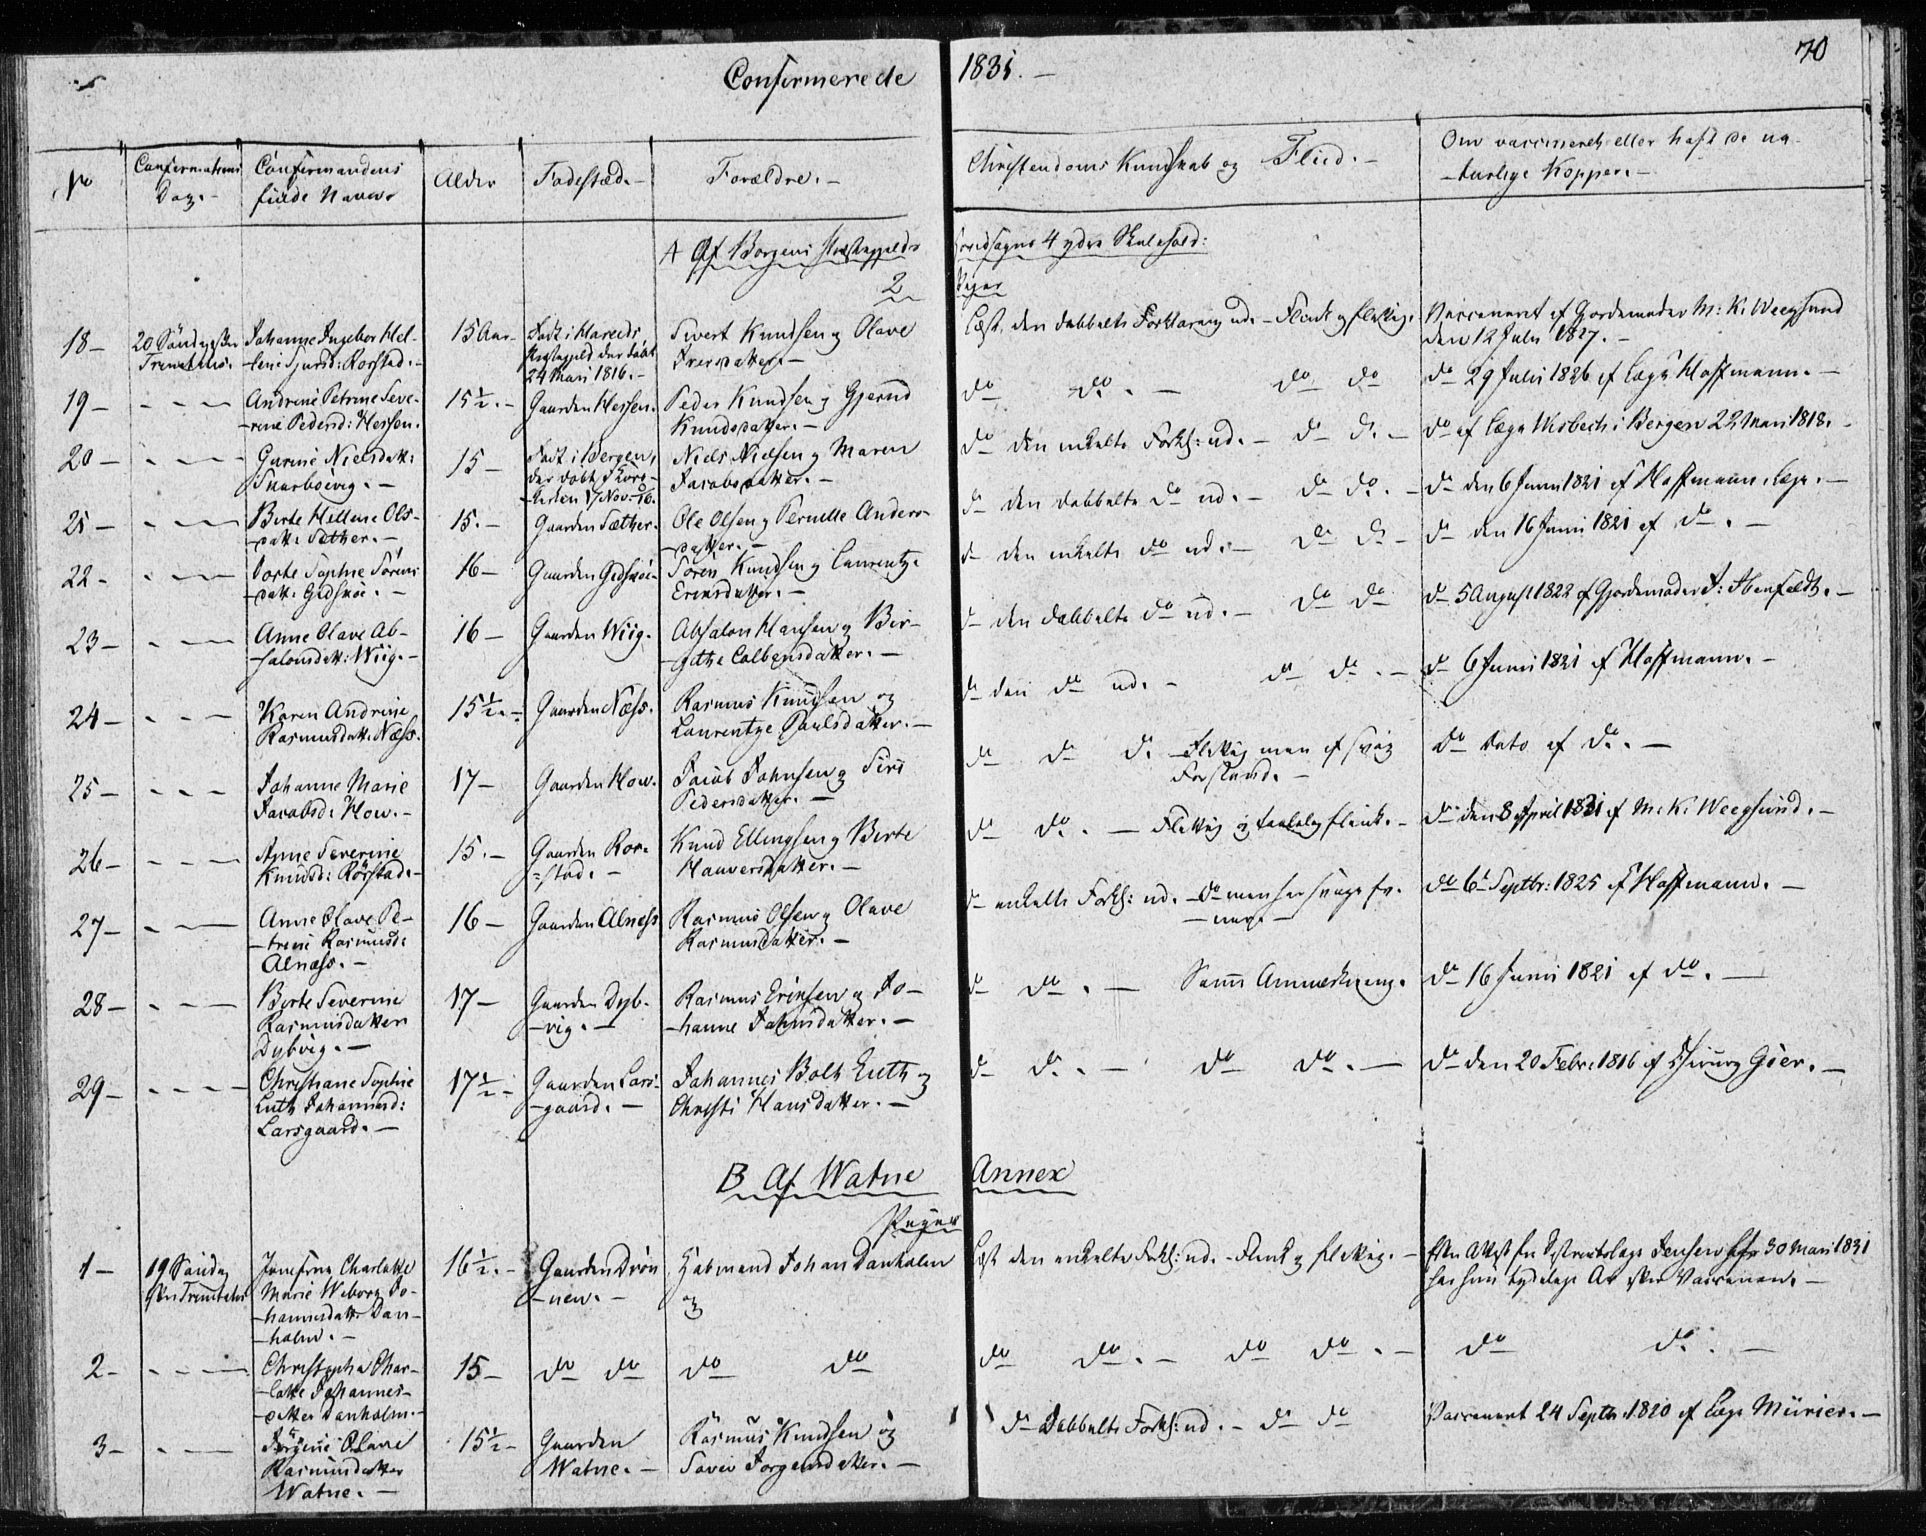 Confirmerede 1831.-
70
No
Confirmations Dag.-
Confirmandens fulde Navn
Alder
Fødested.-
Forældre.-
Christendoms Kundskab og Fliid.-
Om vaccineret eller haft de na-
-turlige Kopper.-
A Af Borgens Præstegjelds
Hovedsogns 4 ydre Skolehold:
2
Piger
18- 20 Søndag efter Trinitatis. Johanne Ingebor Hel-
-lene Sjursd: Rorstad.-
15 Aar- Født i Hareids Præstegjeld der døbt 24 Marti 1816.-
Sivert Knudsen og Olave Iversdatter.-
Læst den dobbelte Forklaring ud.- Flink og flittig.
Vaccineret af Gjordemoder M: K. Weegsund den 12 Julii 1827.-
19- - - - Andrine Petrine Seve-
-rine Pedersd: Hessen.
15½.- Gaarden Hessen. Peder Knudsen og Gjerud Knudsdatter.-
do do.- do do do 29 Julii 1826 af Læge Hoffmann.-
20- - - - Gurine Nielsdatt: 15- Født i Bergen, der døbt
17 Nov. 16. Niels Nielsen og Maren Jacobsdatter.-
do den enkelte Forkl: ud.- do do.- do af Læge Wisbech i Bergen 22 Marti 1818.-
21- - - - Berte Hellene Ols-
-datt: Sæther.-
15.- Gaarden Sæther. Ole Olsen og Pernille Anders-
-datter.-
do den dobbelte do ud.- do do.- do den 6 Junii 1821 af Hoffmann Læge.-
22- - - - Dorte Sophie Sørens-
-datt: Gidskøe.-
16- Gaarden Gidskøe- Søren Knudsen og Laurentze Ericksdatter.-
do den enkelte do ud.- do do- do den 16 Junii 1821 af do.-
23- - - - Anne Olave Ab-
-salonsdatt: Wiig.-
16- Gaarden Wiig. Absalon Hansen og Bir-
-gitte Colbensdatter.-
do den dobbelte do ud.- do do do 5 August 1822 af Gjordemoder
24- - - - Karen Andrine Rasmusdatt: Næss.
15½.- Gaarden Næss. Rasmus Knudsen og Laurentze Paulsdatter.-
do den do ud.- do do.- do 6 Junii 1821 af Hoffmann.-
25- - - - Johanne Marie Jacobsd: How.-
17- Gaarden How. Jacob Johnsen og Siri Pedersdatter.-
do do do- Flittig men af svag Forstand.- do dato af do.-
26- - - - Anne Severine Knudsd: Rørstad.-
15.- Gaarden Ror-
=stad.- Knud Ellingsen og Berte Hauversdatter.-
do do.- Flittig og taalelig flink.- do den 8 April 1831 af M: K. Weegsund.-
27- - - - Anne Olave Pe-
-trine Rasmusd: Alnæss.-
16- Gaarden Alnæss Rasmus Olsen og Olave Rasmusdatter.-
do enkelte Forkl: ud.- do men har svage Ev-
-ner.- do 6 Septbr: 1825 af Hoffmann.-
28- - - - Berte Severine Rasmusdatter Dybvig.-
17- Gaarden Dyb-
-vig.- Rasmus Ericksen og Jo-
-hanne Johnsdatter.-
do do.- Samme Anmerkning. do 16 Junii 1821 af do.-
29- - - - Christiane Sophie Luth Johannesd: Larsgaard.-
17½- Gaarden Lars-
-gaard.- Johannes Bolt Luth og Christi Hansdatter.-
do do.- do do.- do den 20 Febr: 1816 af Chirurg Gier.-
B Af Watne Annex
Piger
1- 19 Søndag efter Trinitatis Josefine Charlotte Marie Wiborg Jo-
-hannesdatt: Dan-
-holm.-
16½.- Gaarden Drøn-
-nen.- Huusmand Johan Danholm og
Læst den enkelte Forkl: ud.- Flink og flittig.- Efter Attest fra Districtslæge Jensen af 30 Marti 1831 har hun tydelige Ar efter Vaccinen.-
2- - - - Christopha Char-
-lotte Johannes-
-datter Danholm.-
15- do do do do
do do.- do do.- do do.-
3- - - Jørgine Olave Rasmusdatter Watne.-
15½- Gaarden Watne.- Rasmus Knudsen og Jorgensdatter.-
do Dobbelte Forkl: ud.- do do Vaccineret 24 Septbr: 1820 af Læge Mürier.-